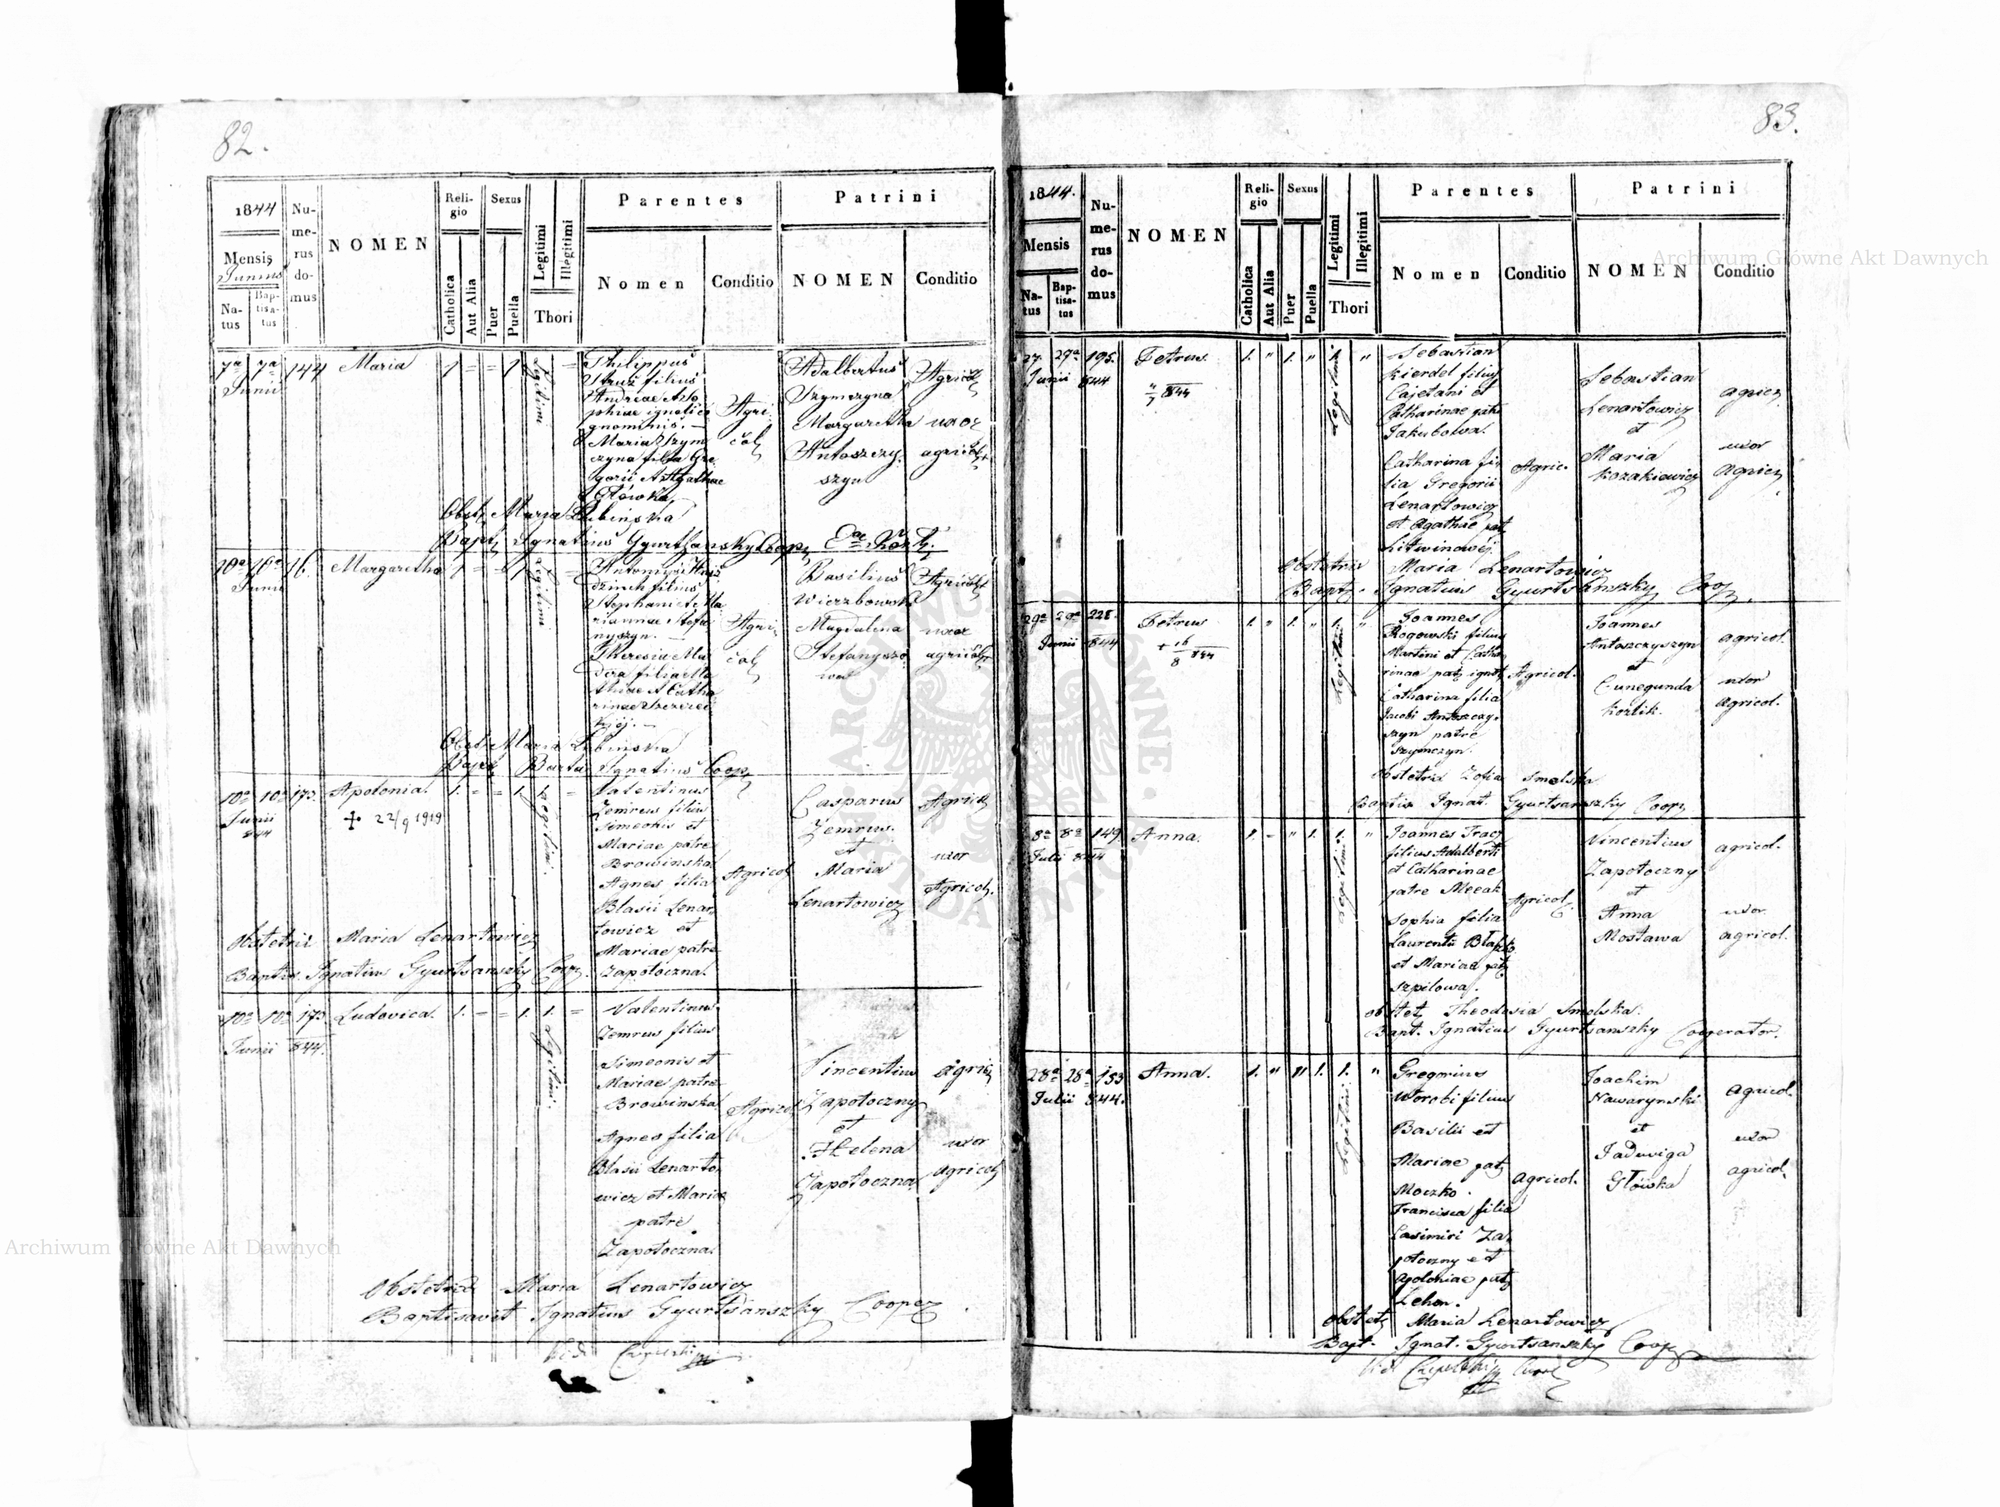 82.
1844
Numerus domus
NOMEN
Religio
Sexus
Legitimi
Illegitimi
Parentes
Patrini
Mensis
Junius
Natus
Baptisatus
Catholica
Aut Alia
Puer
Puella
Thori
Nomen
Conditio
NOMEN
Conditio
7ª 7ª 144 Maria 1 = = 1
Junii
Legitimi
Philippus
filius
Andreae
Maria Szym
czyna filia Gre
gorii Agathae
Główka
Agri
col
Adalbertus
Szymczyna
Margaretha
Antoszczy
szyn
Agricol
uxor
agricol
Obst. Maria Łubińska
Bapt. Ignatius Gyurtsansky Coop.
16. Margaretha 1 = = 1
Junii
Legitimi
filius
Stephani et Ma
riannae Stefa
nyszyn
Theresia
filia
thiae et Catha
rinae
Agri
col
Basilius
Wierzbowski
Magdalena
Stefanyszo
wa
Agricol
uxor
agricol
Obst. Maria Łubińska
Bapt. Ignatius Coop
10ª 10ª 173. Apolonia. 1. = = 1.
Junii
844
+ 22/9 1919
Legitimi
Valentinus
Zemrus filius
Simeonis et
Mariae patre
Browinska
Agnes filia
Blasii Lenar
towicz et
Mariae patre
Zapotoczna.
Agricol
Casparus
Zemrus.
et
Maria
Lenartowicz
Agricol
uxor
Agricol.
Obstetrix Maria Lenartowicz
Baptis. Ignatius Gyurtsanszky Coop.
10ª 10ª 173 Ludovica. 1. = = 1. 1. =
Junii 844.
Legitimi
Valentinus
Zemrus filius
Simeonis et
Mariae patre
Browinska
Agnes filia
Blasii Lenarto
wicz et Mariae
patre
Zapotoczna.
Agricol
Vincentius
Zapotoczny
et
Helena
Zapotoczna
agric
uxor
agricol
Obstetrix Maria Lenartowicz
Baptisavit Ignatius Gyurtsanszky Cooper
83.
1844.
Numerus domus
NOMEN
Religio
Sexus
Legitimi
Illegitimi
Parentes
Patrini
Mensis
Natus
Baptisatus
Catholica
Aut Alia
Puer
Puella
Thori
Nomen
Conditio
NOMEN
Conditio
27. 27ª 195. Petrus 1. " 1. " 1. "
Junii 844
Legitimi
Sebastian
Kierdel filius
Cajetani et
Catharinae patr
Jakubowa.
Catharina fi
lia Gregorii
Lenartowicz
et Agathae pat
Litwinowej.
Agric.
Sebastian
Lenartowicz
et
Maria
Kozakiewicz
agric
uxor
Agric
Obstetrix Maria Lenartowicz
Bapt. Ignatius Gyurtsanszky Coop.
29ª 29ª 228. Petrus 1. " 1. " 1. "
Junii 844
+ 16/8 844
Legitimi
Joannes
Rogowski filius
Martini et Catha
rinae patr ignot
Catharina filia
Jacobi Antoszczy
szyn patre
Szymczyn.
Agricol.
Joannes
Antoszczyszyn
et
Cunegunda
Kozlik.
agricol.
uxor
agricol.
Obstetrix Zofia Smelska
Baptis Ignat. Gyurtsanszky Coop.
8ª 8ª 149 Anna. 1. - " 1. 1. "
Julii 844
Legitimi
Joannes Tracz
filius Adalberti
et Catharinae
patre Mecak
Sophia filia
Laurentii Błażko
et Mariae pat
Szpilowa.
Agricol.
Vincentius
Zapotoczny
et
Anna
Mostawa
agricol.
uxor
agricol.
Obstet. Theodosia Smelska.
Bapt. Ignatius Gyurtsanszky Cooperator.
28ª 28ª 153 Anna. 1. " " 1. 1. "
Julii 844.
Legitimi
Gregorius
Worobi filius
Basilii et
Mariae pat
Moczko.
Francisca filia
Casimiri Za
potoczny et
Apoloniae patr
Zehon.
Agricol.
Joachim
Nawarynski
et
Jadwiga
Główska
agricol.
uxor
agricol.
Obstet Maria Lenartowicz
Bapt. Ignat. Gyurtsanszky Coop
Archiwum Główne Akt Dawnych
Archiwum Główne Akt Dawnych
ARCHIWUM GŁÓWNE AKT DAWNYCH